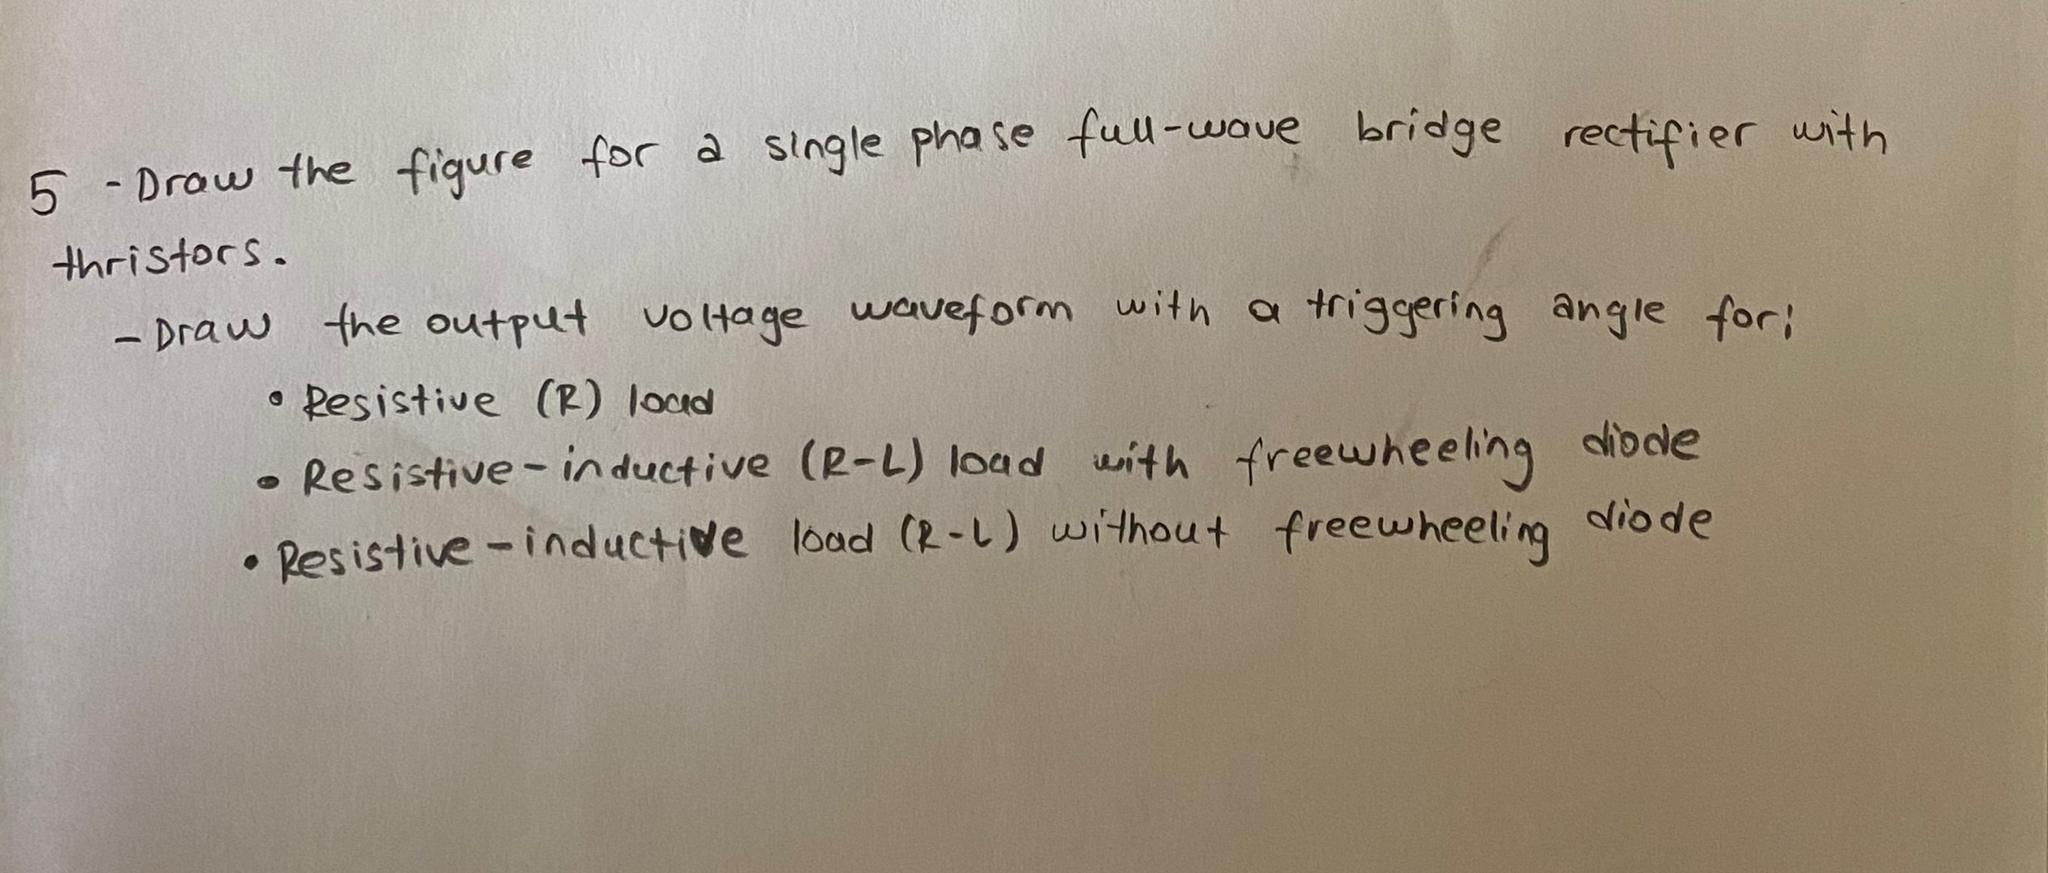 5 - Draw the figure for a single phase full-wave bridge rectifier with
thristors.
- Draw the output voltage waveform with a triggering angle for:
• Resistive (R) load
• Resistive-inductive (R-L) load with freewheeling diode
• Resistive-inductive load (R-L) without freewheeling diode